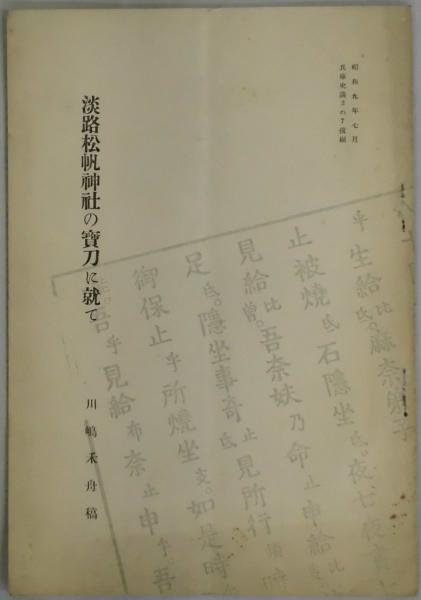 昭和九年七月
兵庫史談２の７複刷
淡路松帆神社の寶刀に就て
川嶋禾舟稿
生給比
乎
氐。麻奈弟子
止被燒氐石隱坐氐。夜七夜晝七
見給比
曾。吾奈妋乃命止申給比
足氐。隱坐事奇氐止見所行
御保止乎所燒坐支。如是時
吾乎見給布奈止申乎。吾